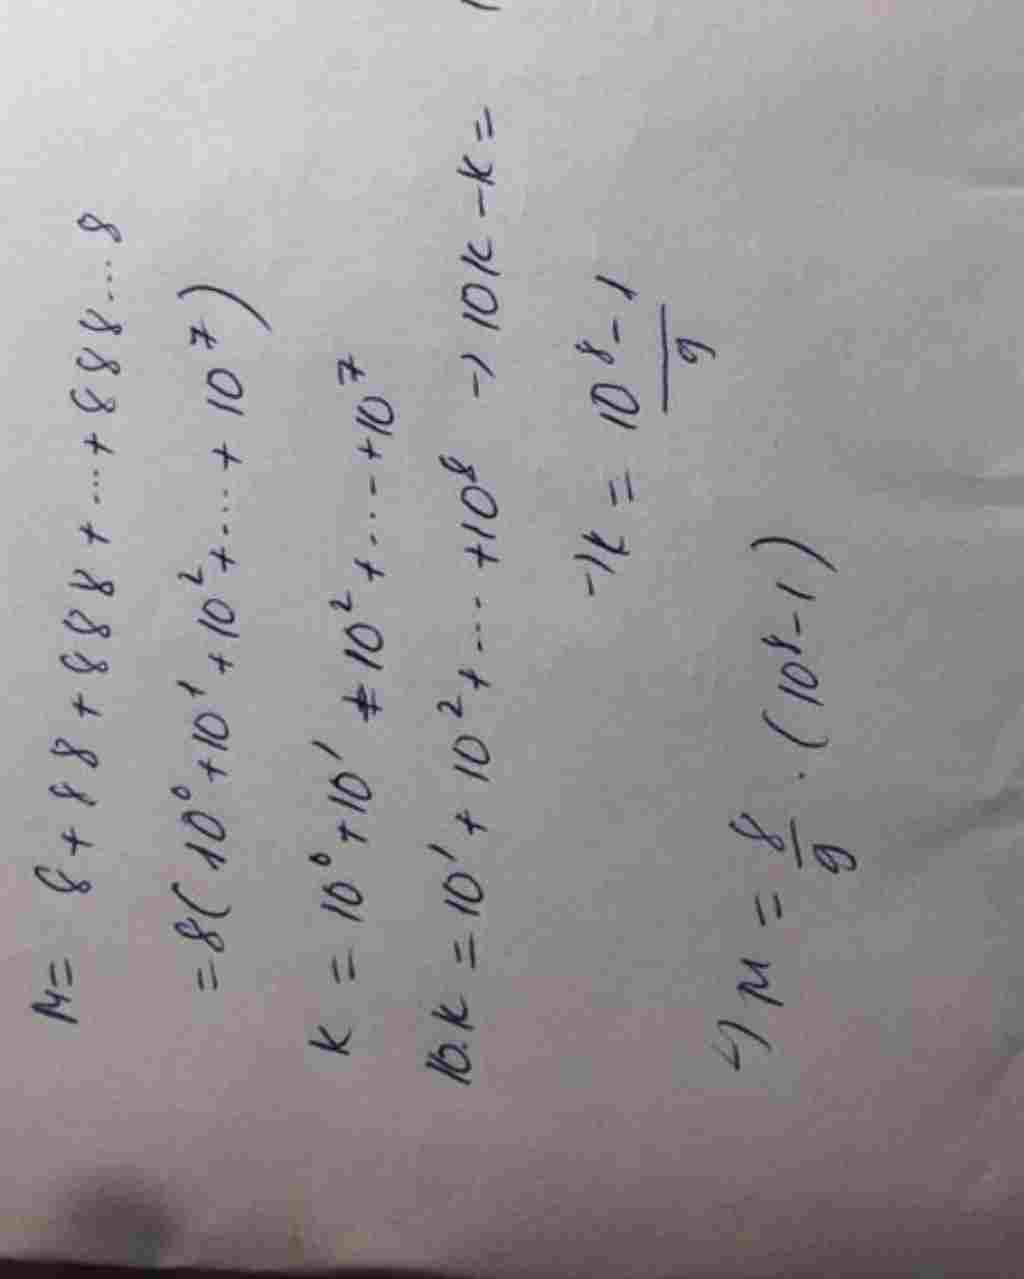 M = 8 + 88 + 888 + ... + 888...8
= 8(10⁰ + 10¹ + 10² + ... + 10⁷)
K = 10⁰ + 10¹ + 10² + ... + 10⁷
10.K = 10¹ + 10² + ... + 10⁸ → 10K - K =
→ K = \frac{10⁸ - 1}{9}
→ M = \frac{8}{9} . (10⁸ - 1)